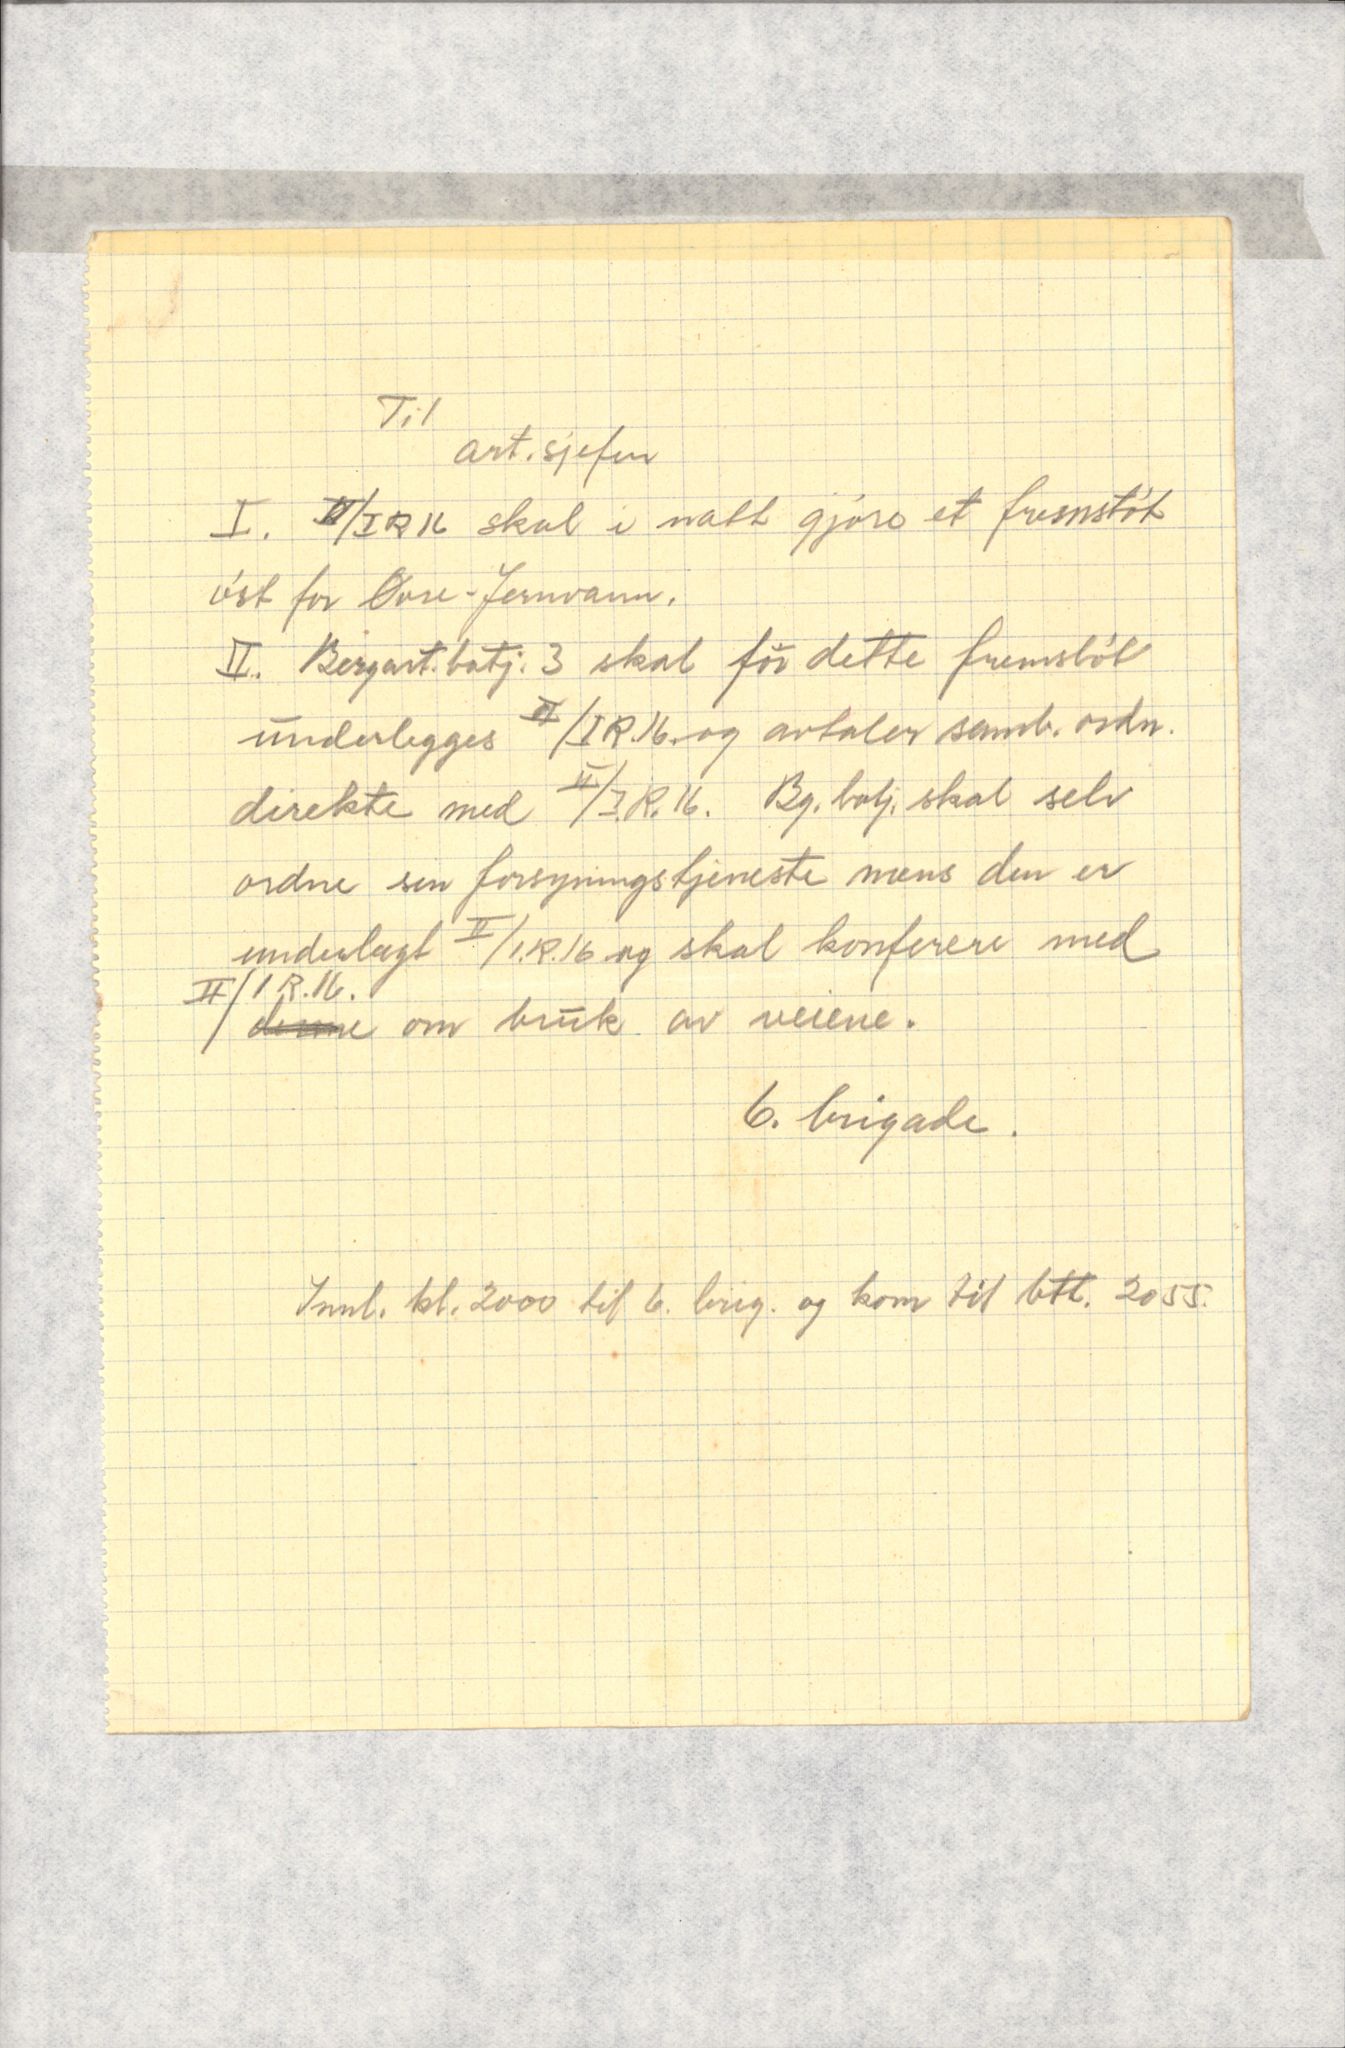 Til
art. sjefen
I. II/IR 16 skal i natt gjøre et fremstøt
øst for Øvre-Jernvann.
II. Bergart. batj. 3 skal för dette fremstøt
underlegges II/IR.16. og avtaler samb. ordn.
direkte med II/I.R.16. Bg. batj. skal selv
ordne sin forsyningstjeneste mens den er
underlagt II/I.R.16 og skal konferere med
II/I R.16.
denne om bruk av veiene.
6. brigade.
Innl. kl. 2000 til 6. brig. og kom til btt. 2055.